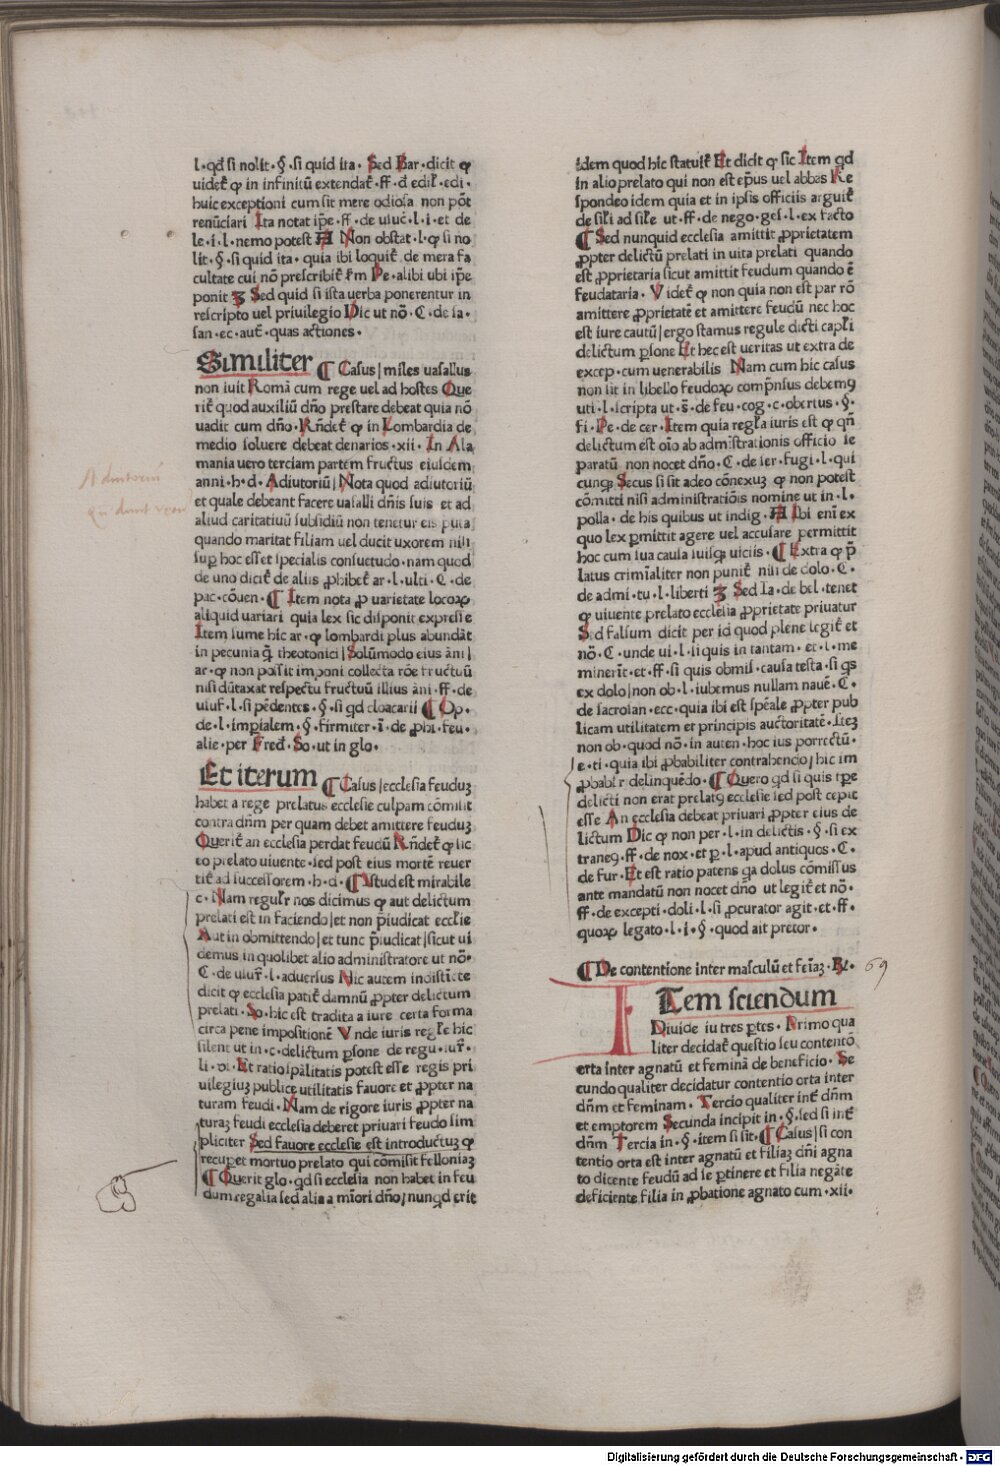 l·qd si nolit·§·si quid ita· Sed Bar·dicit ꝙ
uidet᷑ ꝙ in infinitū extendat᷑·ff·d edil᷑·edi·
huic exceptioni cum sit mere odiosa non pōt
renūciari Ita notat ip̄e·ff·de usuc·l·i·et de
le·i·l·nemo potest Non obstat·l·ꝙ si no
lit·§·si quid ita· quia ibi loquit᷑ de mera fa
cultate cui nō prescribit᷑ s̄m Pe·alibi ubi ip̄e
ponit Sed quid si ista uerba ponerentur in
rescripto uel priuilegio Dic ut nō·C·de sa·
san·ec·aut̄·quas actiones·
Similiter ¶ Casus/miles uasallus
non iuit Romā cum rege uel ad hostes Que
rit᷑ quod auxiliū dn̄o prestare debeat quia nō
uadit cum dn̄o·Rn̄det᷑ ꝙ in Lombardia de
medio soluere debeat denarios·xii·In Ala
mania uero terciam partem fructus eiusdem
anni·h·d·Adiutoriū/Nota quod adiutoriū
et quale debeant facere uasalli dn̄is suis et ad
aliud caritatiuū subsidiū non tenetur eis puta
quando maritat filiam uel ducit uxorem nisi
suꝑ hoc esset specialis consuetudo·nam quod
de uno dicit᷑ de aliis ꝓhibet᷑ ar·l·ulti·C·de
pac·cōuen·¶ Item nota ꝓ uarietate locoꝝ
aliquid uariari quia lex sic disponit expresse
Item sume hic ar·ꝙ lombardi plus abundāt
in pecunia q̄ theotonici/Solūmodo eius āni/
ar·ꝙ non possit imponi collecta rōe fructuū
nisi dūtaxat respectu fructuū illius āni·ff·de
usuf·l·si pēdentes·§·si qd cloacarii ¶ Op·
de·l·imꝑialem·§·firmiter·ī·de ꝓhi·feu·
alie·per Fred·So·ut in glo·
Et iterum ¶ Casus/ecclesia feuduꝫ
habet a rege prelatus ecclesie culpam cōmisit
contra dn̄m per quam debet amittere feuduꝫ
Querit᷑ an ecclesia perdat feudū Rn̄det᷑ ꝙ sic
eo prelato uiuente·sed post eius mortē reuer
tit᷑ ad successorem·h·d·¶ Istud est mirabile
c·Nam regulr̄ nos dicimus ꝙ aut delictum
prelati est in faciendo/et non p̄iudicat eccl̄ie
Aut in obmittendo/et tunc p̄iudicat/sicut ui
demus in quolibet alio administratore ut nō·
C·de usur̄·l·aduersus Hic autem indistīcte
dicit ꝙ ecclesia patit᷑ damnū ꝓpter delictum
prelati·So·hic est tradita a iure certa forma
circa pene impositionē Vnde iuris regl̄e hic
silent ut in·c·delictum ꝑsone de regu·iur̄·
li·vi·Et ratio ip̄alitatis potest esse regis pri
uilegiuꝫ publice utilitatis fauore et ꝓpter na
turam feudi·Nam de rigore iuris ꝓpter na
turaꝫ feudi ecclesia deberet priuari feudo sim
pliciter Sed fauore ecclesie est introductuꝫ ꝙ
recuꝑet mortuo prelato qui cōmisit felloniaꝫ
¶ Querit glo·qd si ecclesia non habet in feu
dum regalia sed alia a miori dn̄o/nunqd erit
Adiutorium
idem quod hic statuit᷑ Et dicit ꝙ sic Item qd
in alio prelato qui non est ep̄us uel abbas Re
spondeo idem quia et in ipsis officiis arguit᷑
de sil̄i ad sil̄e ut·ff·de nego·ges·l·ex facto
¶ Sed nunquid ecclesia amittit ꝓprietatem
ꝓpter delictū prelati in uita prelati quando
est ꝓprietaria sicut amittit feudum quando ē
feudataria·Videt᷑ ꝙ non quia non est par rō
amittere ꝓprietatē et amittere feudū nec hoc
est iure cautū/ergo stamus regule dicti capl̄i
delictum ꝑsone Et hec est ueritas ut extra de
excep·cum uenerabilis Nam cum hic casus
non sit in libello feudoꝝ comp̄nsus debemꝰ
uti·l·scripta ut·s̄·de feu·cog·c·obertus·§·
fi·Pe·de cer·Item quia regl̄a iuris est ꝙ qn̄
delictum est oīo ab administrationis officio se
paratū non nocet dn̄o·C·de ser·fugi·l·qui
cunqꝫ Secus si sit adeo cōnexuꝫ ꝙ non potest
cōmitti nisi administratiōis nomine ut in·l·
polla·de his quibus ut indig· Ibi eni᷑ ex
quo lex ꝑmittit agere uel accusare permittit
hoc cum sua causa suisqꝫ uiciis·¶ Extra ꝙ p̄
latus crimīaliter non punit᷑ nisi de dolo·C·
de admi·tu·l·liberti Sed Ia·de bel·tenet
ꝙ uiuente prelato ecclesia ꝓprietate priuatur
Sed falsum dicit per id quod plene legit᷑ et
nō·C·unde ui·l·si quis in tantam·et·l·me
minerīt·et·ff·si quis obmis·causa testa·si qs
ex dolo/non ob·l·iubemus nullam nauē·C·
de sacrosan·ecc·quia ibi est spēale ꝓpter pub
licam utilitatem et principis auctoritatē·Iteꝫ
non ob·quod nō·in auten·hoc ius porrectū·
e·ti·quia ibi ꝓbabiliter contrahendo/hic im
ꝓbabl̄r delinquēdo·¶ Quero qd si quis tp̄e
delicti non erat prelatꝰ ecclesie sed post cepit
esse An ecclesia debeat priuari ꝓpter eius de
lictum Dic ꝙ non per·l·in delictis·§·si ex
traneꝰ·ff·de nox·et ꝑ·l·apud antiquos·C·
de fur·Et est ratio patens qa dolus cōmissus
ante mandatū non nocet dn̄o ut legit᷑ et nō·
ff·de excepti·doli·l·si ꝓcurator agit·et·ff·
quoꝝ legato·l·i·§·quod ait pretor·
¶ De contentione inter masculū et fem̄iaꝫ·Rr̄·
69
ITem sciendum
Diuide iu tres ꝑtes·Primo qua
liter decidat᷑ questio seu contentō
orta inter agnatū et feminā de beneficio·Se
cundo qualiter decidatur contentio orta inter
dn̄m et feminam·Tercio qualiter int᷑ dn̄m
et emptorem Secunda incipit in·§·sed si int᷑
dn̄m Tercia in·§·item si sit·¶ Casus/si con
tentio orta est inter agnatū et filiaꝫ dn̄i agna
to dicente feudū ad se ꝑtinere et filia negāte
deficiente filia in ꝓbatione agnato cum·xii·
Digitalisierung gefördert durch die Deutsche Forschungsgemeinschaft · DFG